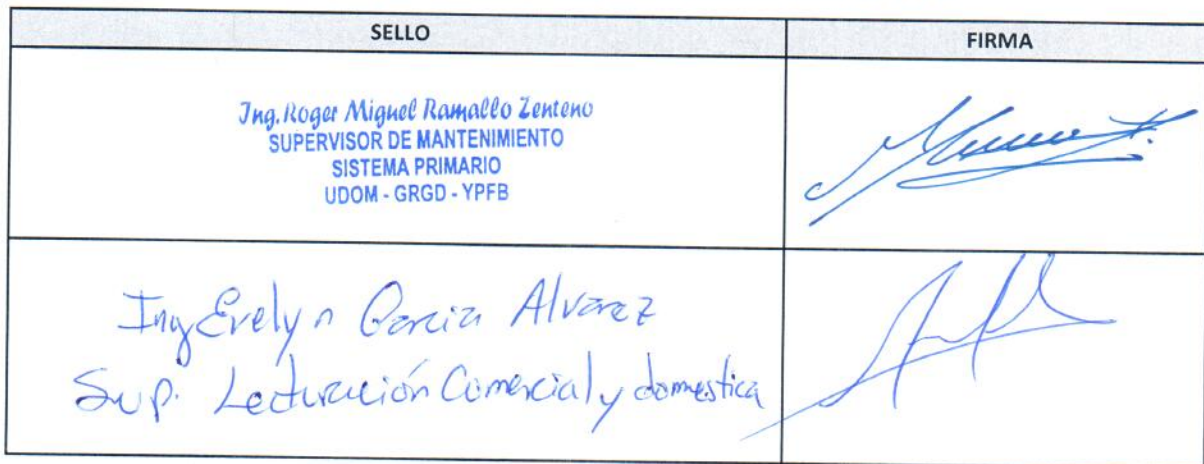 SELLO
FIRMA
Ing. Roger Miguel Ramallo Zenteno
SUPERVISOR DE MANTENIMIENTO
SISTEMA PRIMARIO
UDOM - GRGD - YPFB
Ing Evelyn Garcia Alvarez
Sup. Lecturación Comercial y domestica